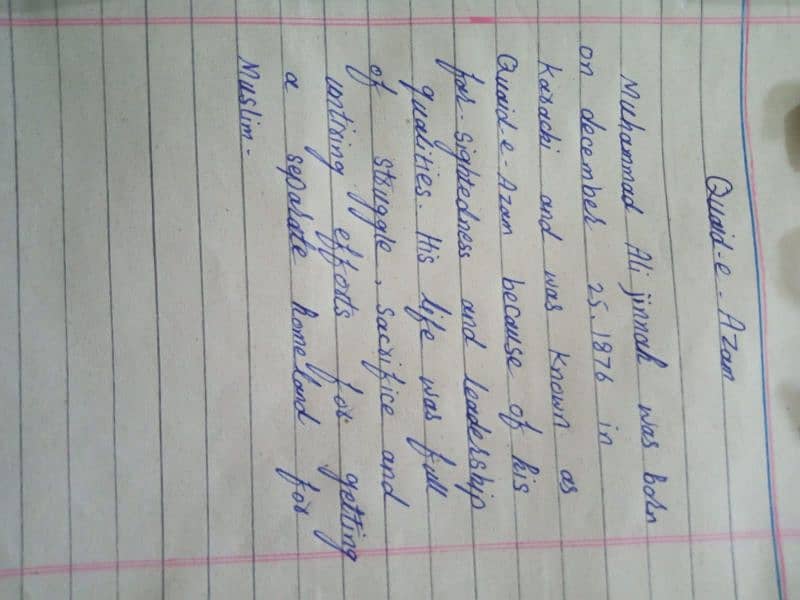 Quaid-e-Azam
Muhammad Ali jinnah was born
on december 25, 1876 in
karachi and was known as
Quaid-e-Azam because of his
far-sightedness and leadership
qualities. His life was full
of struggle, sacrifice and
untiring efforts for getting
a separate homeland for
Muslim.